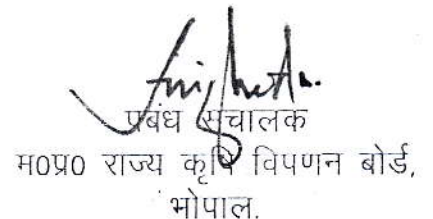 प्रबंध संचालक
म०प्र० राज्य कृषि विपणन बोर्ड,
भोपाल.